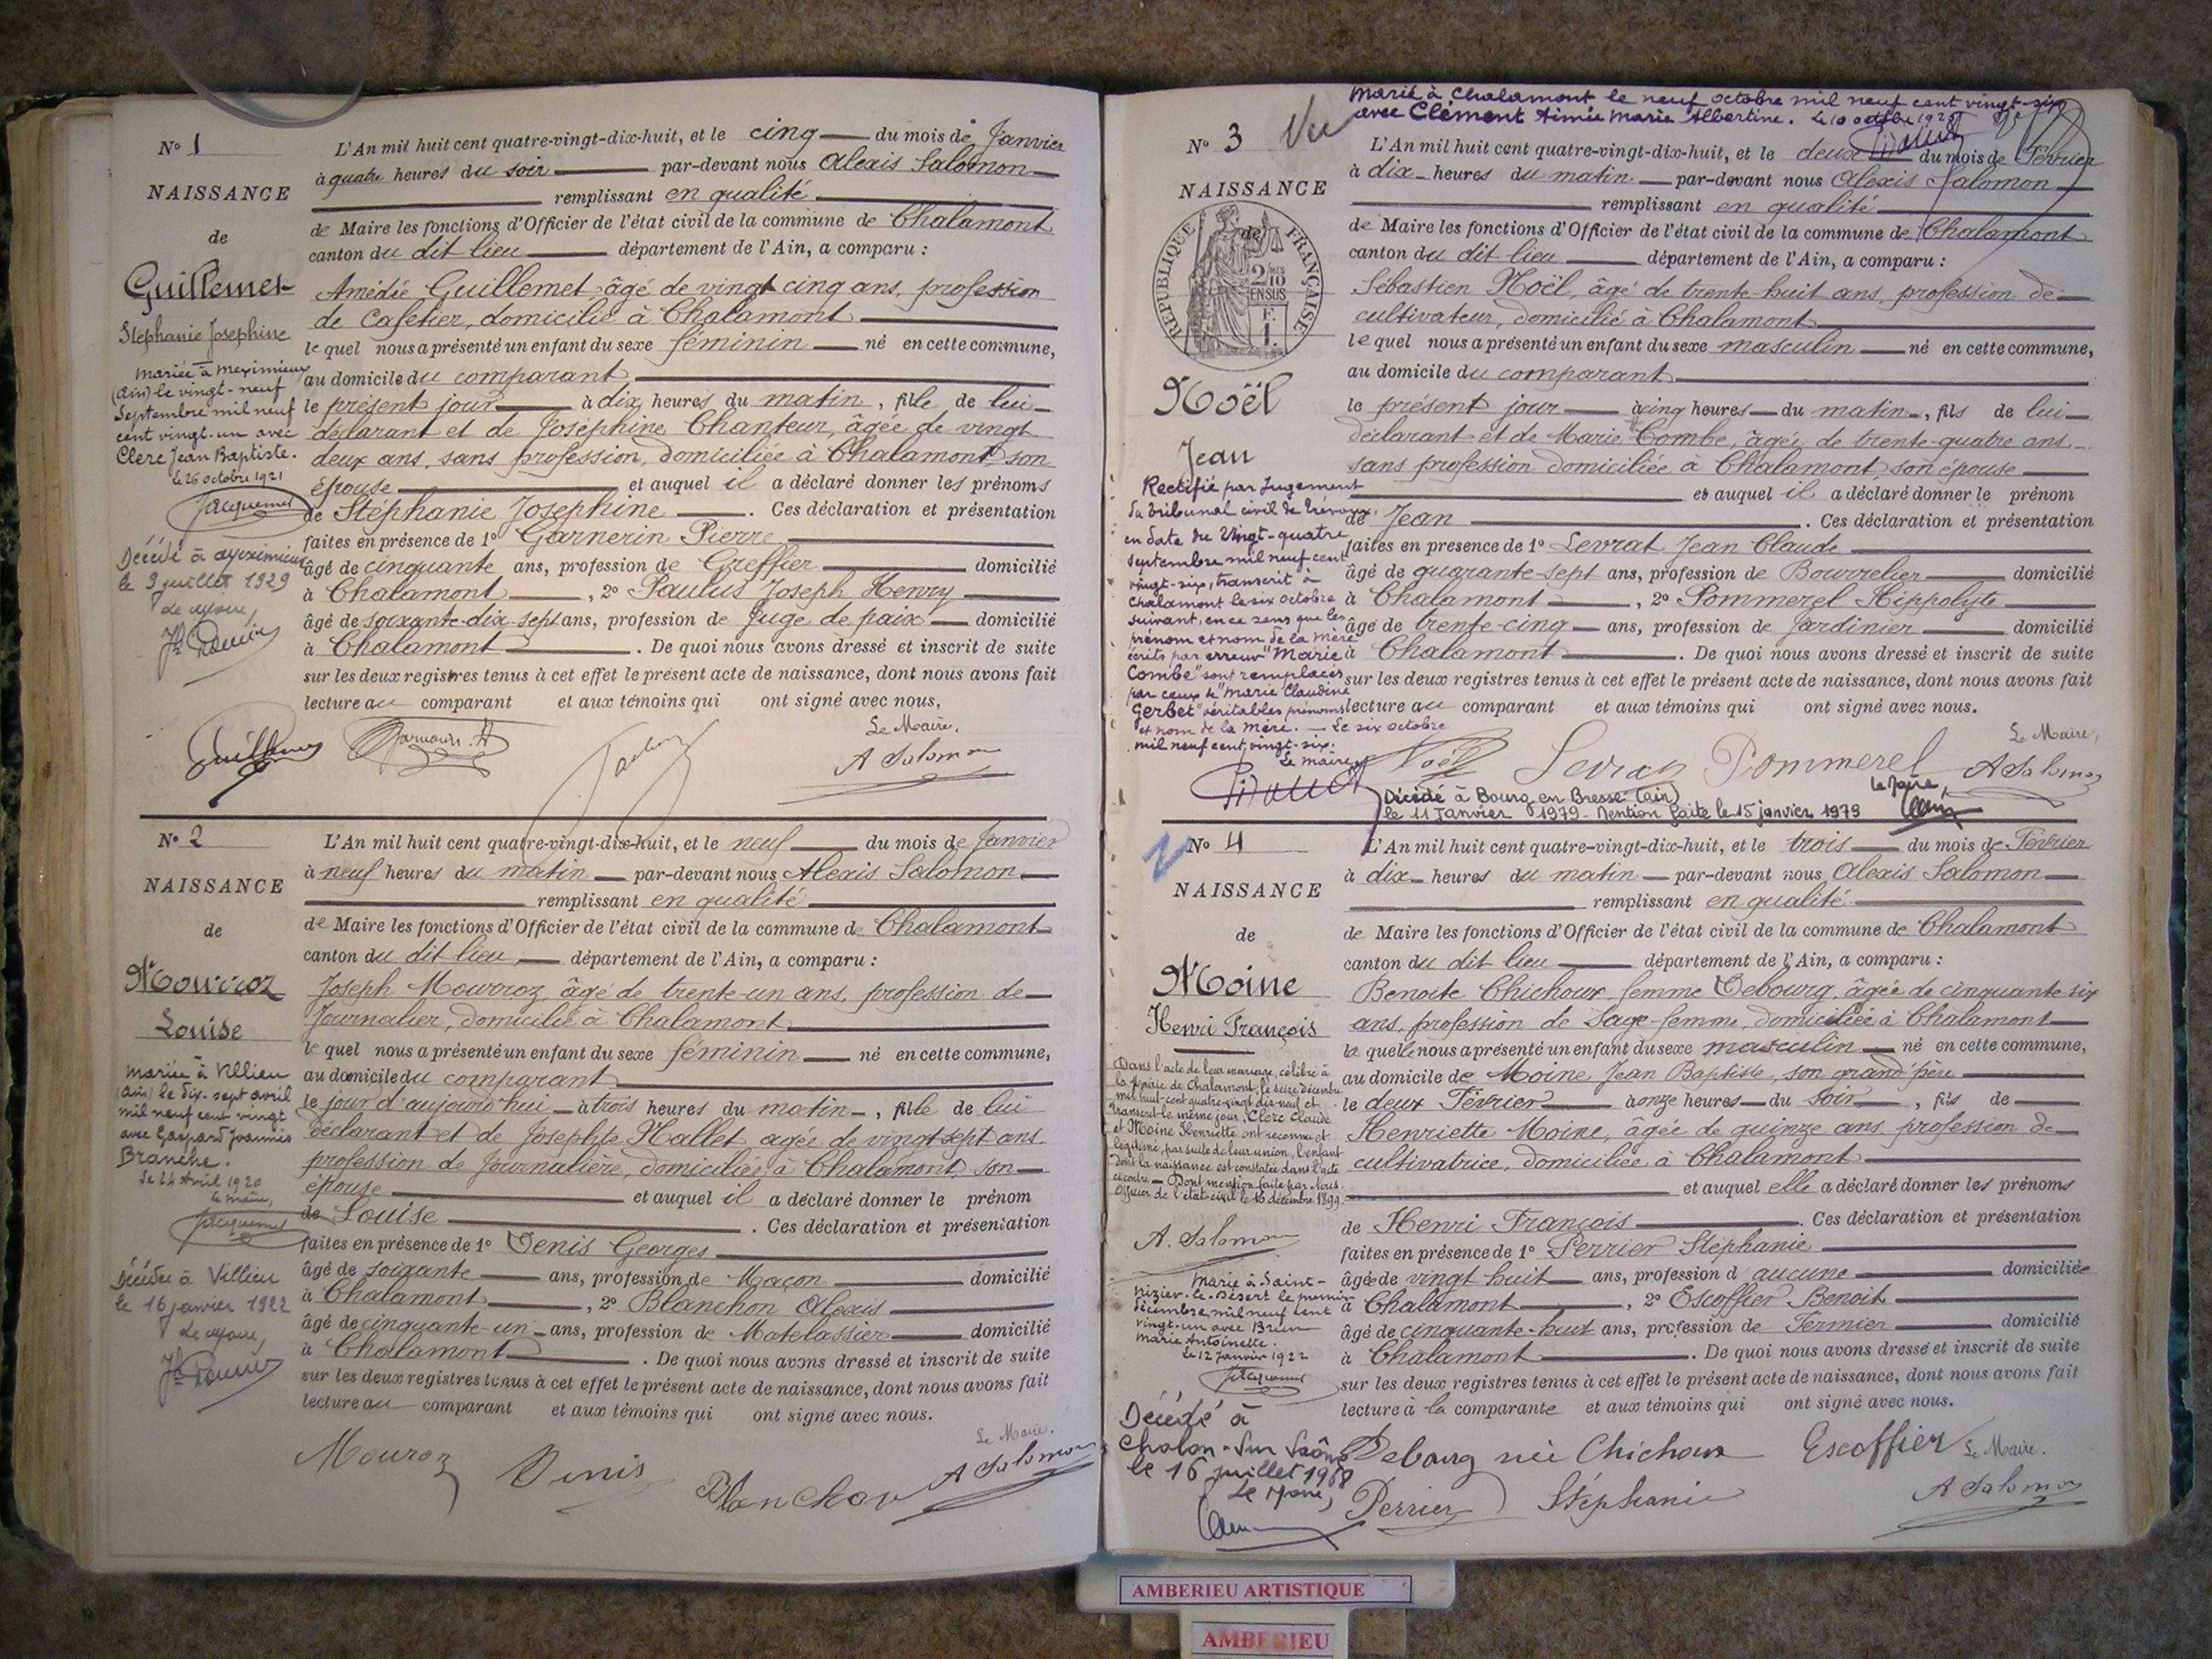 N° 1
NAISSANCE
de
Guillemet
Stéphanie Joséphine
mariée à Meximieux
(ain) le vingt-neuf
Septembre mil neuf
cent vingt-un avec
Clerc Jean Baptiste.
le 26 octobre 1921
Jacquemet
Décédé à Meximieux
le 9 juillet 1929
Le Maire,
L'An mil huit cent quatre-vingt-dix-huit, et le cinq du mois de Janvier
à quatre heures du soir par-devant nous Alexis Salomon
remplissant en qualité
de Maire les fonctions d'Officier de l'état civil de la commune de Chalamont
canton du dit lieu département de l'Ain, a comparu :
Amédié Guillemet âgé de vingt cinq ans, profession
de Cafetier, domicilié à Chalamont
le quel nous a présenté un enfant du sexe féminin né en cette commune,
au domicile du comparant
le présent jour à dix heures du matin, fille de lui
déclarant et de Joséphine Chanteur, âgée de vingt
deux ans, sans profession, domiciliée à Chalamont, son
épouse et auquel il a déclaré donner les prénoms
de Stéphanie Joséphine. Ces déclaration et présentation
faites en présence de 1° Garnerin Pierre
âgé de cinquante ans, profession de Greffier domicilié
à Chalamont, 2° Paulus Joseph Henry
âgé de soixante-dix-sept ans, profession de Juge de paix domicilié
à Chalamont. De quoi nous avons dressé et inscrit de suite
sur les deux registres tenus à cet effet le présent acte de naissance, dont nous avons fait
lecture au comparant et aux témoins qui ont signé avec nous.
Le Maire.
Guillemet A Salomon
N° 2
NAISSANCE
de
Mourroz
Louise
mariée à Villieu
(ain) le dix-sept avril
mil neuf cent vingt
avec Gaspard Joannès
Branche.
le 24 Avril 1920
le maire,
Jacquemet
Décédée à Villieu
le 16 janvier 1922
Le Maire,
L'An mil huit cent quatre-vingt-dix-huit, et le neuf du mois de Janvier
à neuf heures du matin par-devant nous Alexis Salomon
remplissant en qualité
de Maire les fonctions d'Officier de l'état civil de la commune de Chalamont
canton du dit lieu département de l'Ain, a comparu :
Joseph Mourroz, âgé de trente-un ans, profession de
Journalier, domicilié à Chalamont
le quel nous a présenté un enfant du sexe féminin né en cette commune,
au domicile du comparant
le jour d'aujourd'hui à trois heures du matin, fille de lui
déclarant et de Josephte Hallet agée de vingt sept ans,
profession de Journalière, domiciliée à Chalamont, son
épouse et auquel il a déclaré donner le prénom
de Louise. Ces déclaration et présentation
faites en présence de 1° Denis Georges
âgé de soixante ans, profession de Maçon domicilié
à Chalamont, 2° Blanchon Alexis
âgé de cinquante-un ans, profession de Matelassier domicilié
à Chalamont. De quoi nous avons dressé et inscrit de suite
sur les deux registres tenus à cet effet le présent acte de naissance, dont nous avons fait
lecture au comparant et aux témoins qui ont signé avec nous.
Le Maire.
Mouroz Denis Blanchon A Salomon
Marié à Chalamont le neuf octobre mil neuf cent vingt-six
avec Clément Aimée Marie Albertine. Le 10 octobre 1926
N° 3 Vu
NAISSANCE
de
RÉPUBLIQUE FRANÇAISE
2/10
EN SUS
F.
1.
Noël
Jean
Rectifié par Jugement
du tribunal civil de Trévoux,
en date du Vingt-quatre
septembre mil neuf cent
vingt-six, transcrit à
Chalamont le six octobre
suivant, en ce sens que les
prénom et nom de la mère
écrits par erreur "Marie
Combe" sont remplacés
par ceux de "Marie Claudine
Gerbet" véritables prénoms
et nom de la mère. — Le six octobre
mil neuf cent vingt-six.
Le maire,
L'An mil huit cent quatre-vingt-dix-huit, et le deux du mois de Février
à dix heures du matin par-devant nous Alexis Salomon
remplissant en qualité
de Maire les fonctions d'Officier de l'état civil de la commune de Chalamont
canton du dit lieu département de l'Ain, a comparu :
Sébastien Noël, âgé de trente-huit ans, profession de
cultivateur, domicilié à Chalamont
le quel nous a présenté un enfant du sexe masculin né en cette commune,
au domicile du comparant
le présent jour à cinq heures du matin, fils de lui
déclarant et de Marie Combe, âgée de trente-quatre ans,
sans profession domiciliée à Chalamont son épouse
et auquel il a déclaré donner le prénom
de Jean. Ces déclaration et présentation
faites en présence de 1° Levrat Jean Claude
âgé de quarante-sept ans, profession de Bourrelier domicilié
à Chalamont, 2° Pommerel Hippolyte
âgé de trente-cinq ans, profession de Jardinier domicilié
à Chalamont. De quoi nous avons dressé et inscrit de suite
sur les deux registres tenus à cet effet le présent acte de naissance, dont nous avons fait
lecture au comparant et aux témoins qui ont signé avec nous.
Le Maire,
Noël Levrat Pommerel A Salomon
Décédé à Bourg en Bresse (ain) le Maire,
le 11 Janvier 1979 - Mention faite le 15 janvier 1979
N° 4
NAISSANCE
de
Moine
Henri François
Dans l'acte de leur mariage, célébré à
la Mairie de Chalamont le seize décembre
mil huit cent quatre-vingt dix-neuf et
transcrit le même jour, Clerc Claude
et Moine Henriette ont reconnu et
légitimé, par suite de leur union, l'enfant
dont la naissance est constatée dans l'acte
ci-contre — Dont mention faite par Nous
Officier de l'état-civil le 16 décembre 1899.
A. Salomon
Marié à Saint-
Nizier-le-Désert le premier
décembre mil neuf cent
vingt-un avec Brun
Marie Antoinette.
Le 12 Janvier 1922
Jacquemet
Décédé à
Chalon-sur Saône
le 16 juillet 1968
Le Maire,
L'An mil huit cent quatre-vingt-dix-huit, et le trois du mois de Février
à dix heures du matin par-devant nous Alexis Salomon
remplissant en qualité
de Maire les fonctions d'Officier de l'état civil de la commune de Chalamont
canton du dit lieu département de l'Ain, a comparu :
Benoite Chichoux femme Debourg, âgée de cinquante-six
ans, profession de Sage-femme, domiciliée à Chalamont
la quelle nous a présenté un enfant du sexe masculin né en cette commune,
au domicile de Moine Jean Baptiste, son grand'père
le deux Février à onze heures du soir, fils de
Henriette Moine, âgée de quinze ans, profession de
cultivatrice, domiciliée à Chalamont
et auquel elle a déclaré donner les prénoms
de Henri François. Ces déclaration et présentation
faites en présence de 1° Perrier Stéphanie
âgée de vingt huit ans, profession d'aucune domiciliée
à Chalamont, 2° Escoffier Benoit
âgé de cinquante-huit ans, profession de Fermier domicilié
à Chalamont. De quoi nous avons dressé et inscrit de suite
sur les deux registres tenus à cet effet le présent acte de naissance, dont nous avons fait
lecture à la comparante et aux témoins qui ont signé avec nous.
Debourg née Chichoux Escoffier Le Maire.
Perrier Stéphanie A Salomon
AMBERIEU ARTISTIQUE
AMBERIEU